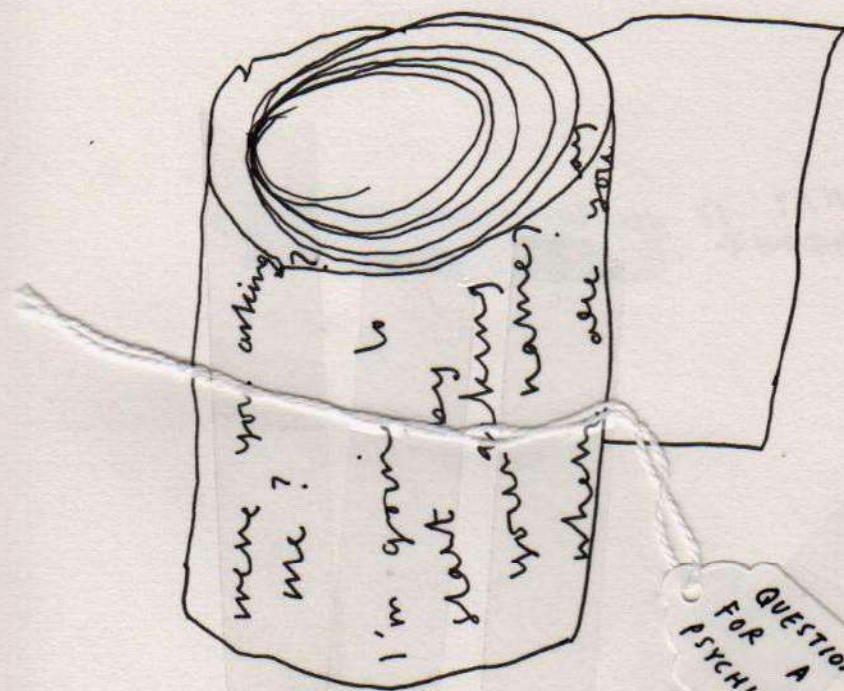 were you asking
me? ?
I'm going to
start by
asking
your name,
when are you
QUESTION
FOR A
PSYCHI